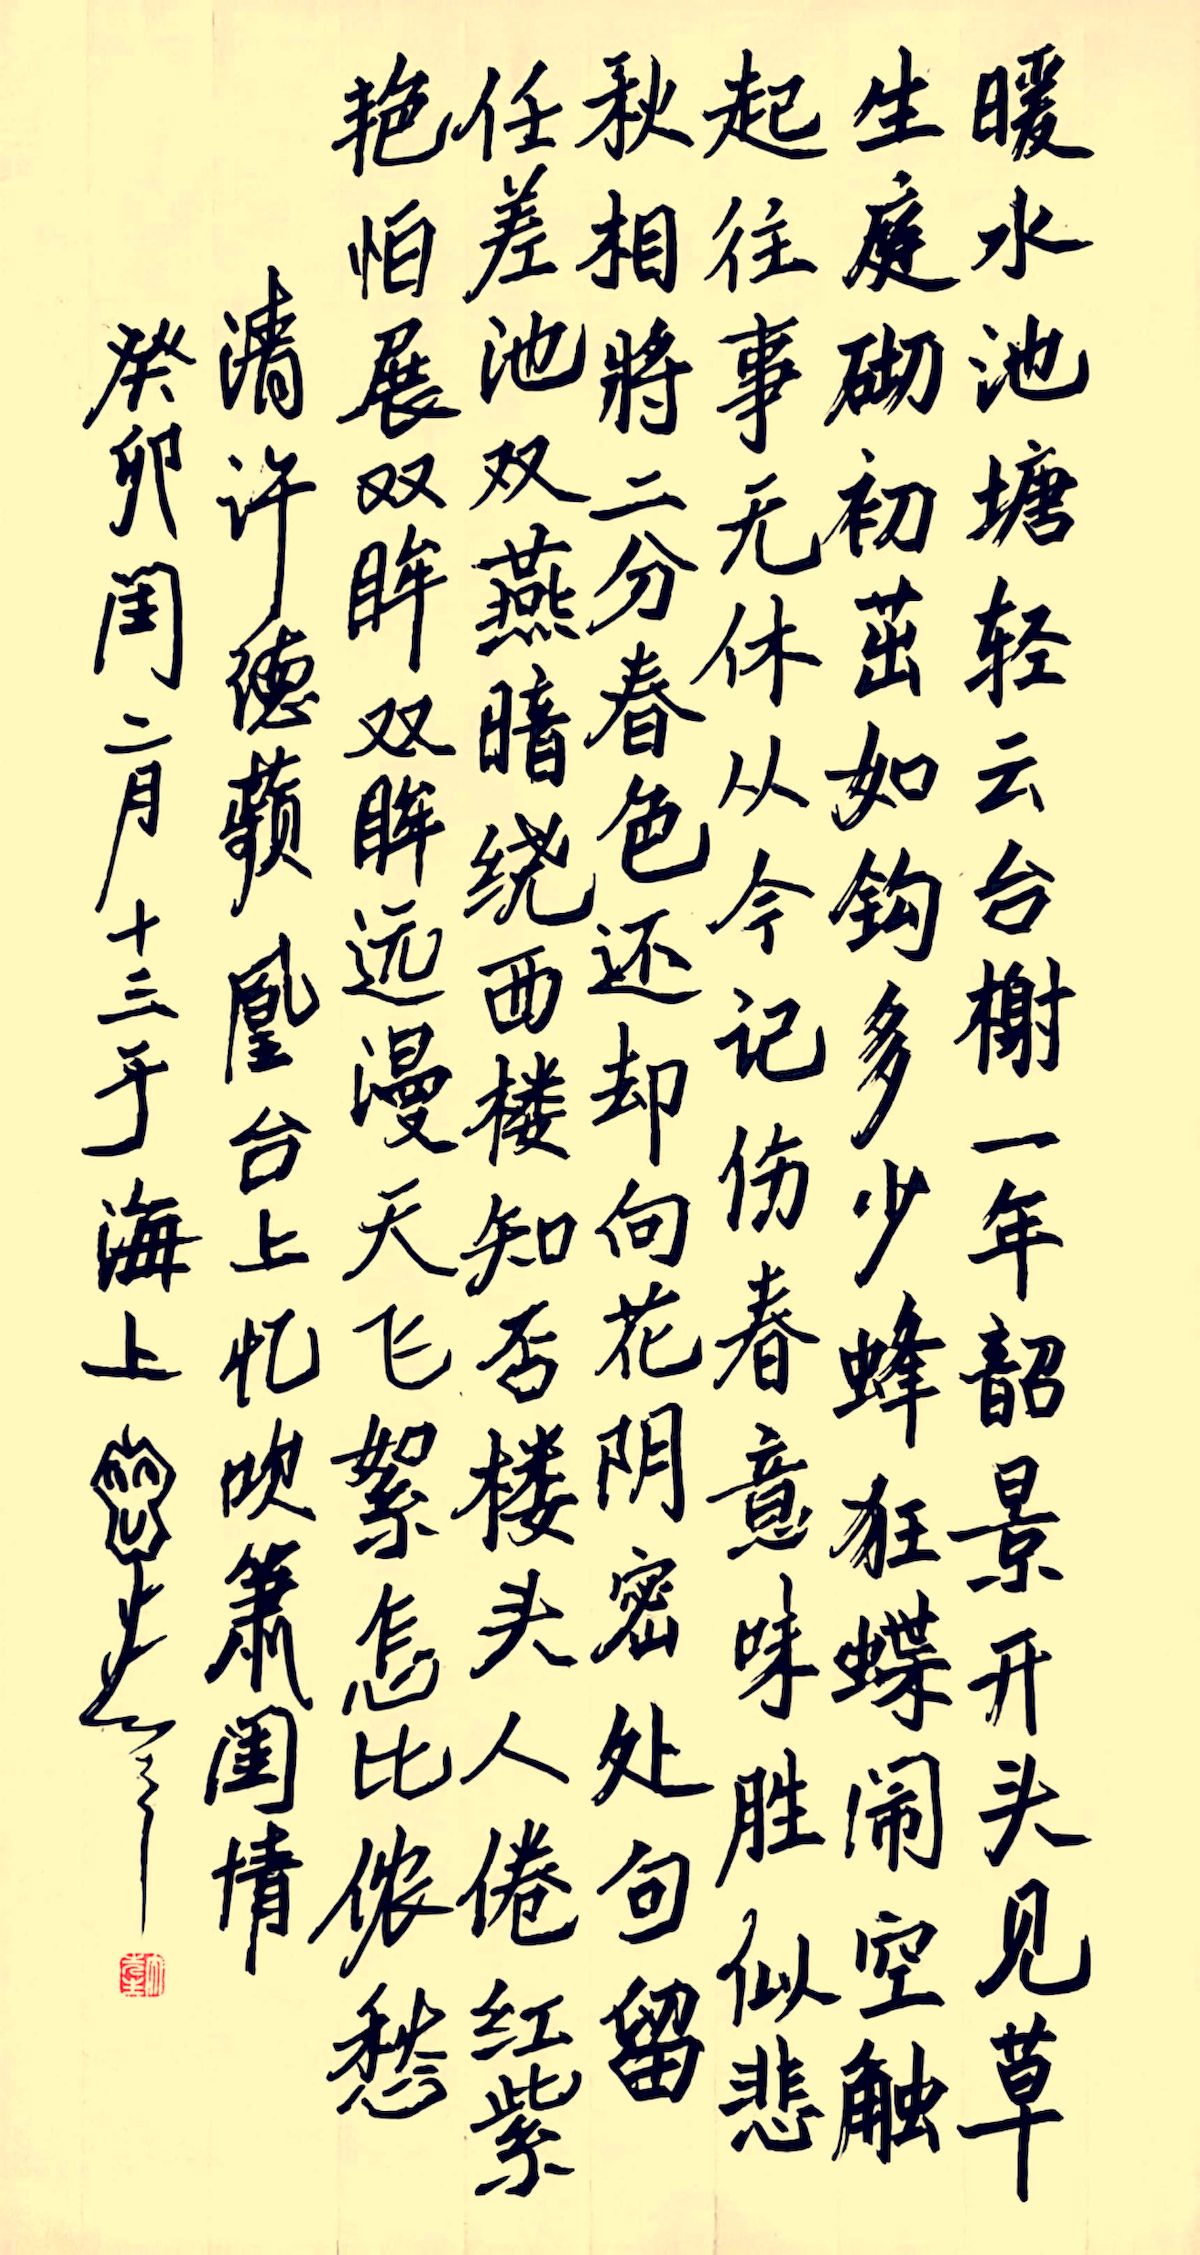 暖水池塘轻云台榭一年韶景开头见草
生庭砌初茁如钩多少蜂狂蝶闹空触
起往事无休从今记伤春意味胜似悲
秋相将二分春色还却向花阴密处句留
任差池双燕暗绕西楼知否楼头人倦红紫
艳怕展双眸双眸远漫天飞絮怎比侬愁
清许德蘋凰台上忆吹箫闺情
癸卯闰二月十三于海上